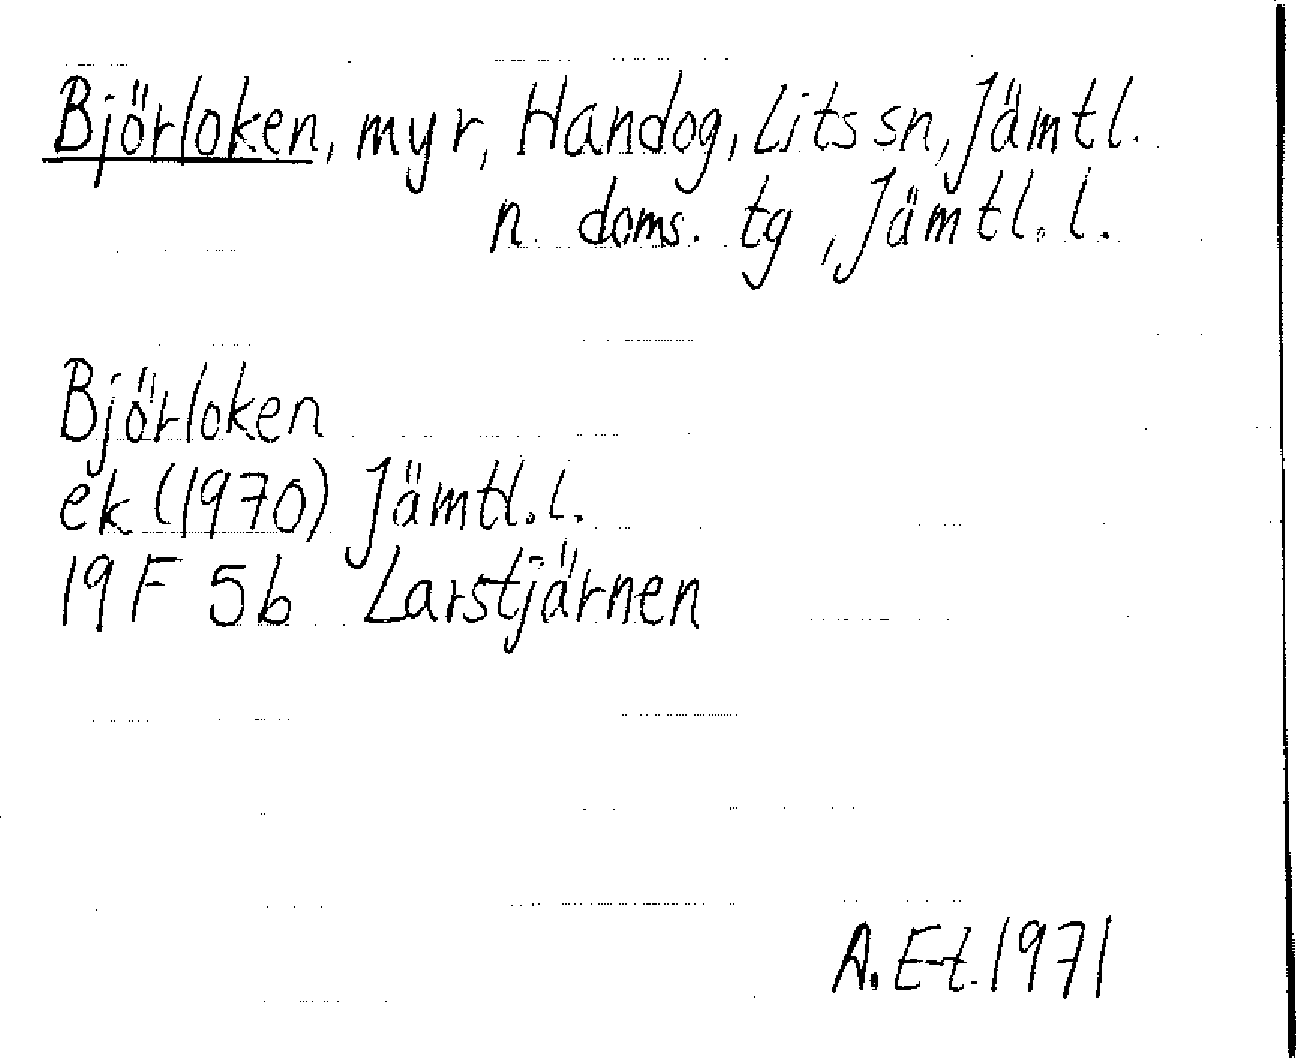 Björloken, myr, Handog, Lits sn, Jämtl.
n. doms. tg, Jämtl. l.
Björloken
ek (1970) Jämtl. l.
19 F 5b Larstjärnen
A. E-t. 1971